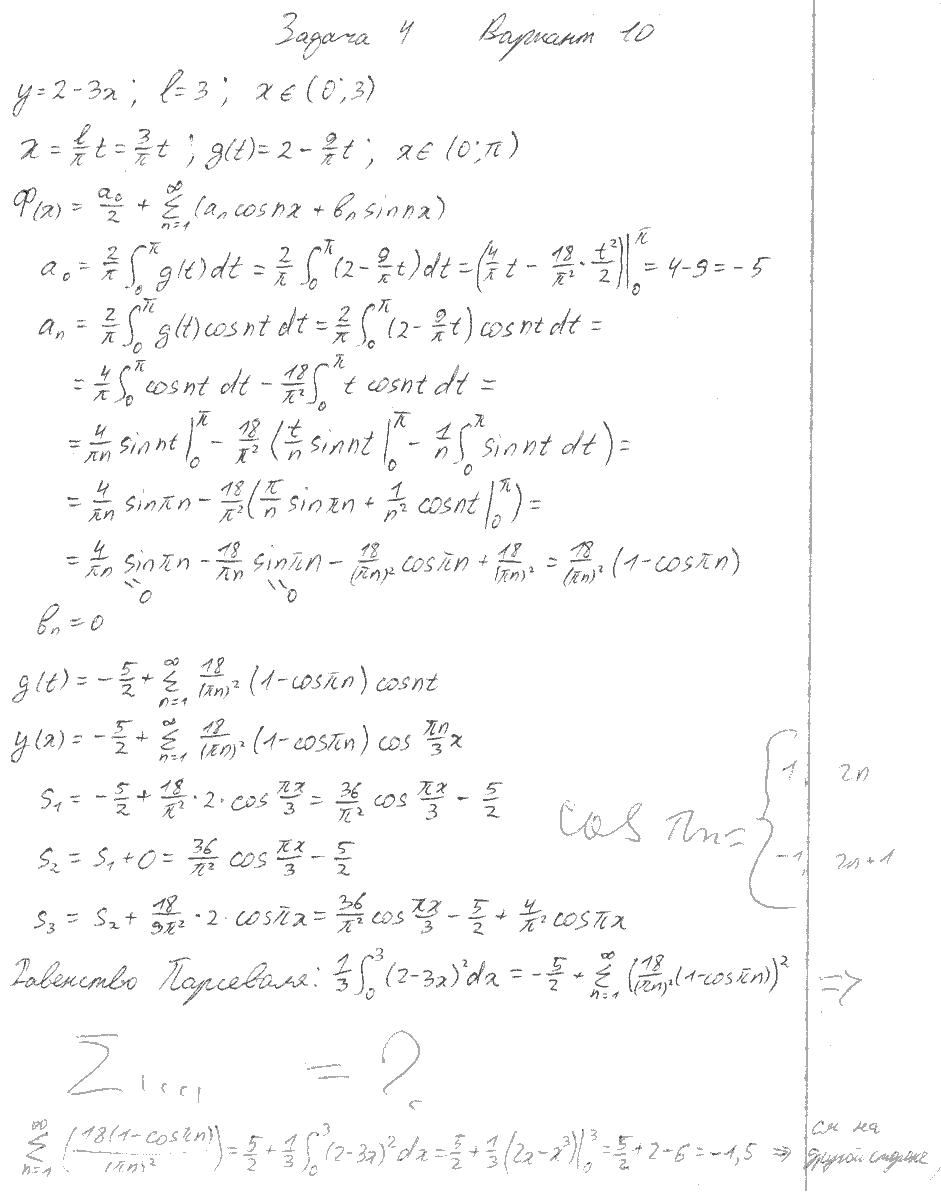 Задача 4 Вариант 10
y=2-3x; l=3; x∈(0;3)
x=l/π t=3/π t; g(t)=2-9/π t; x∈(0;π)
Φ(x)=a₀/2+∑_{n=1}^{∞}(aₙcosnx+bₙsinnx)
a₀=2/π∫₀^π g(t)dt=2/π∫₀^π(2-9/π t)dt=(4/π t-18/π²·t²/2)|₀^π=4-9=-5
aₙ=2/π∫₀^π g(t)cosnt dt=2/π∫₀^π(2-9/π t)cosnt dt=
=4/π∫₀^π cosnt dt-18/π²∫₀^π t cosnt dt=
=4/πn sinnt|₀^π-18/π²(t/n sinnt|₀^π-1/n∫₀^π sinnt dt)=
=4/πn sinπn-18/π²(π/n sinπn+1/n² cosnt|₀^π)=
=4/πn sinπn-18/πn sinπn-18/(πn)² cosπn+18/(πn)²=18/(πn)²(1-cosπn)
=0 =0
bₙ=0
g(t)=-5/2+∑_{n=1}^{∞} 18/(πn)²(1-cosπn)cosnt
y(x)=-5/2+∑_{n=1}^{∞} 18/(πn)²(1-cosπn)cos πn/3 x
S₁=-5/2+18/π²·2·cos πx/3=36/π² cos πx/3-5/2
cos πn={1, 2n
-1, 2n+1
S₂=S₁+0=36/π² cos πx/3-5/2
S₃=S₂+18/9π²·2·cosπx=36/π² cos πx/3-5/2+4/π² cosπx
Равенство Парсеваля: 1/3∫₀³(2-3x)²dx=-5/2+∑_{n=1}^{∞}(18/(πn)²(1-cosπn))² =>
∑ = ?
∑_{n=1}^{∞}(18(1-cosπn)/(πn)²)=5/2+1/3∫₀³(2-3x)²dx=5/2+1/3(2x-x³)|₀³=5/2+2-6=-1,5 => см на
другой стороне